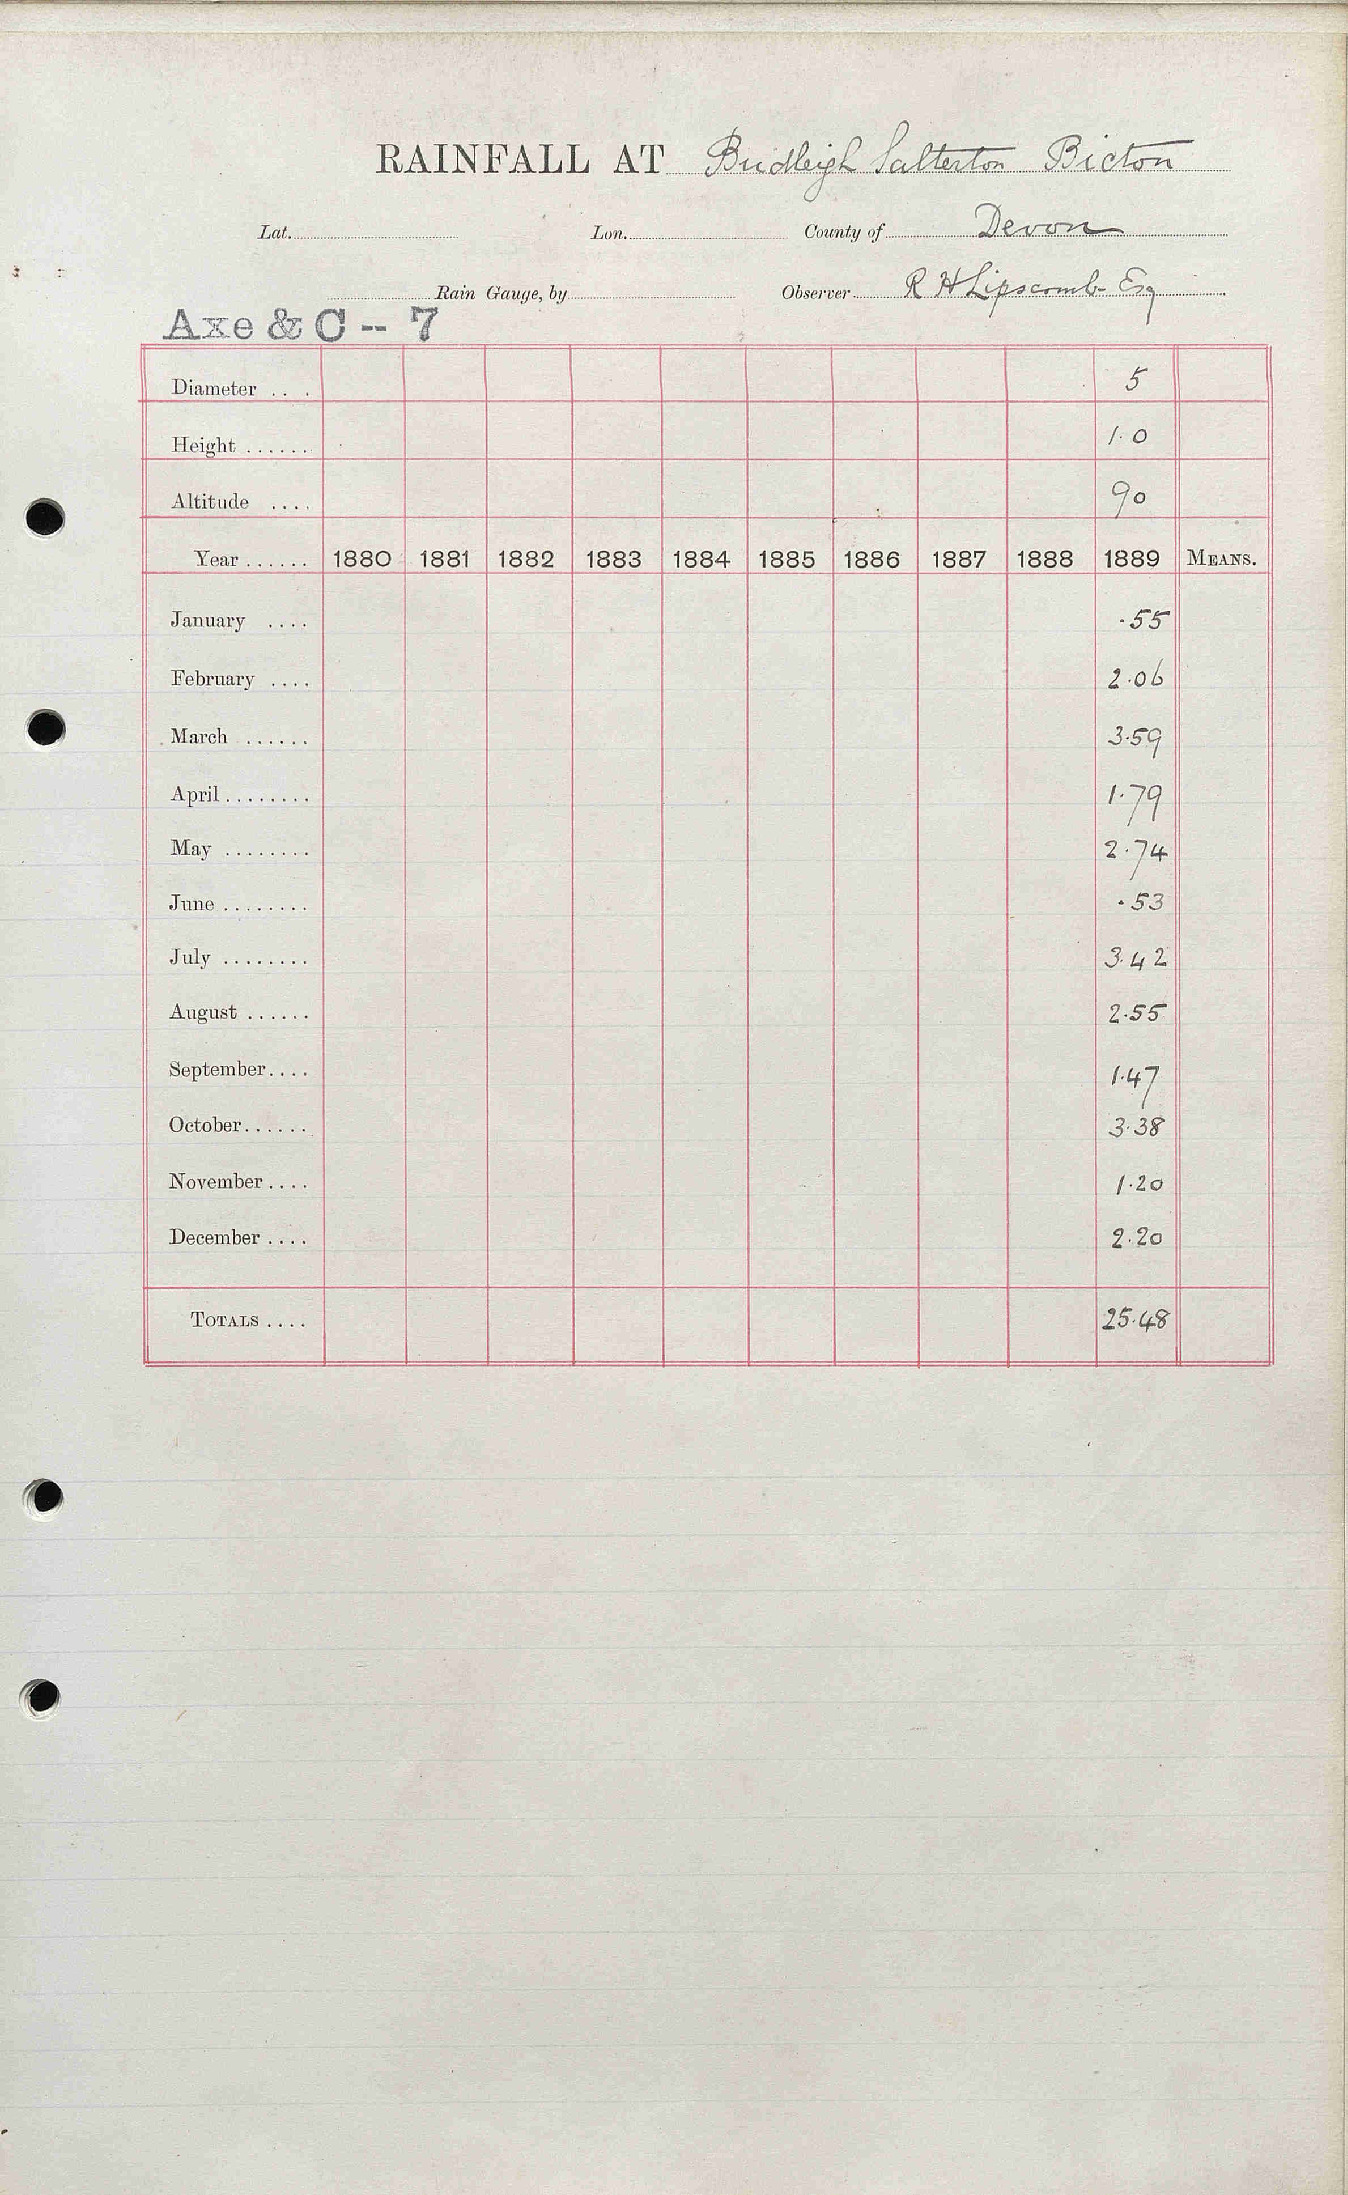 RAINFALL AT Budleigh Salterton Bicton
Lat. Lon. County of Devon
Rain Gauge, by Observer R H Lipscomb Esq
Axe & C -- 7
Diameter . . . 5
Height ...... 1.0
Altitude .... 90
Year ...... 1880 1881 1882 1883 1884 1885 1886 1887 1888 1889 MEANS.
January .... .55
February .... 2.06
March ...... 3.59
April ........ 1.79
May ........ 2.74
June ........ .53
July ........ 3.42
August ...... 2.55
September.... 1.47
October...... 3.38
November.... 1.20
December .... 2.20
TOTALS .... 25.48